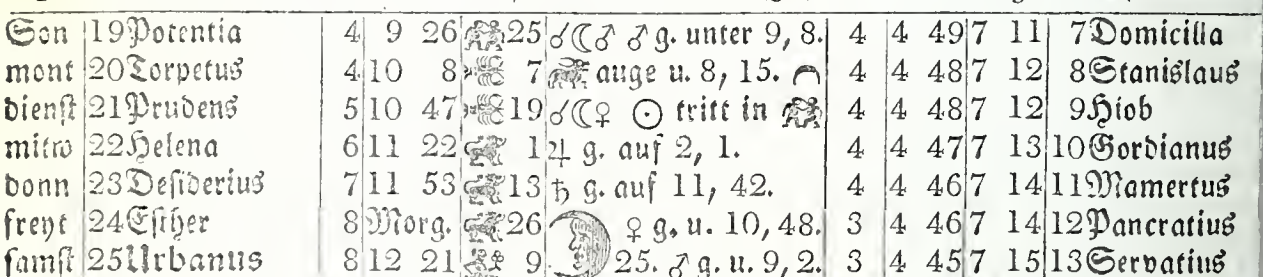 Son 19 Potentia 4 9 26 25 ☌☾♂ ♂ g. unter 9, 8. 4 4 49 7 11 7 Domicilla
mont 20 Torpetus 4 10 8 7 auge u. 8, 15. 4 4 48 7 12 8 Stanislaus
dienst 21 Prudens 5 10 47 19 ☌☾♀ ☉ tritt in 4 4 48 7 12 9 Hiob
mitw 22 Helena 6 11 22 1 ♃ g. auf 2, 1. 4 4 47 7 13 10 Gordianus
donn 23 Desiderius 7 11 53 13 ♄ g. auf 11, 42. 4 4 46 7 14 11 Mamertus
freyt 24 Esther 8 Morg. 26 ♀ g. u. 10, 48. 3 4 46 7 14 12 Pancratius
samst 25 Urbanus 8 12 21 9 25. ♂ g. u. 9, 2. 3 4 45 7 15 13 Servatius